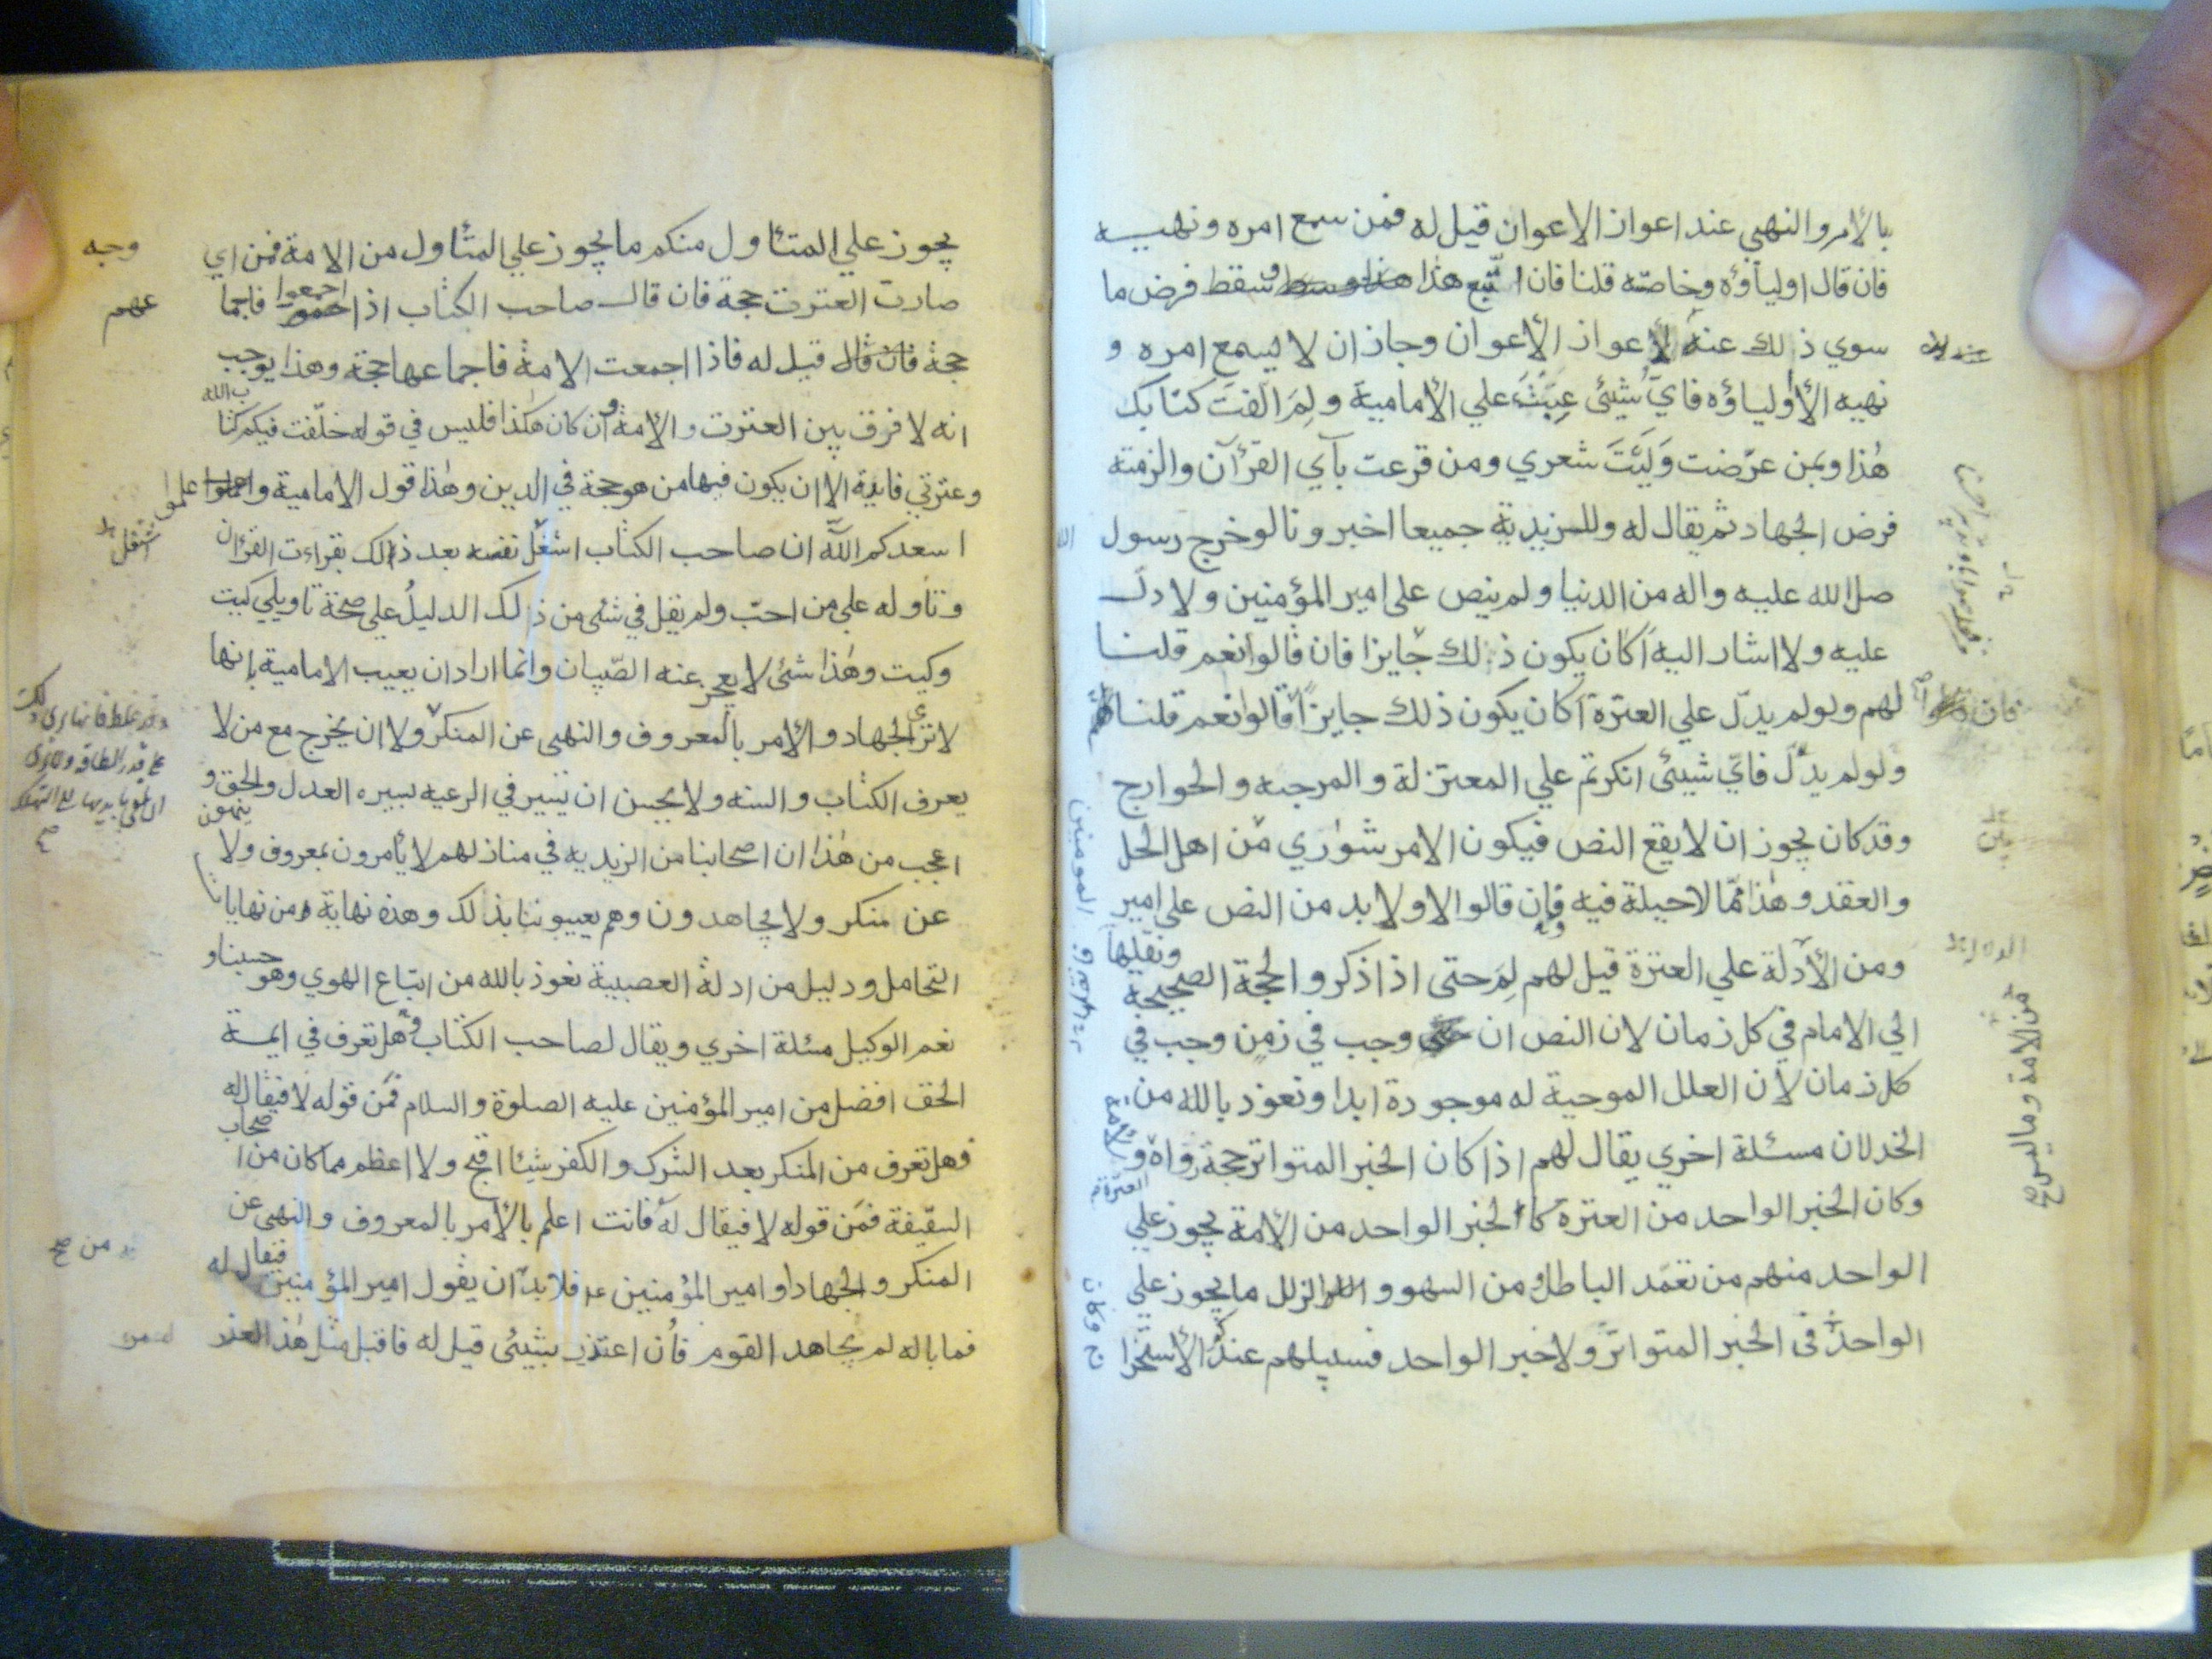 بالأمر والنهي عند اعواز الاعوان قيل له فمن سمع امره ونهيه
فان قال اولياؤه وخاصته قلنا فان اتّبع هذا وسقط فرض ما
سوي ذلك عنه لأعواز الأعوان وجاز ان لا يسمع امره و
نهيه الأ اولياؤه فايّ شيئ عِبْتَ علي الأمامية ولِمَ الّفتَ كتابك
هٰذا وبمن عرّضت وَلَيْتَ شعري ومن قرعت بآي القرآن والزمته
فرض الجهاد ثم يقال له وللزيدية جميعا اخبرونا لو خرج رسول الله
صلي الله عليه واله من الدنيا ولم ينص على امير المؤمنين ولا دلّ
عليه ولا اشار اليه أكان يكون ذلك جايزا فان قالوا نعم قلنا
لهم ولو لم يدلّ علي العترة أكان يكون ذلك جايزًا فان قالوا نعم قلنا
ولو لم يدلّ فايّ شيئ انكرتم علي المعتزلة والمرجئه والخوارج
وقد كان يجوز ان لا يقع النص فيكون الامر شوري من اهل الحل
والعقد وهٰذا ممّا لا حيلة فيه فإن قالوا لا ولا بد من النص على امير المومنين
ومن الأدلة علي العترة قيل لهم لِمَ حتى اذا ذكروا الحجة الصحيحة ونقلها
الي الامام في كل زمان لان النص ان وجب في زمن وجب في
كل زمان لأن العلل الموجبة له موجودة ابدا ونعوذ بالله من
الخذلان مسئلة اخري يقال لهم اذا كان الخبر المتواتر حجة رواه العترة والأمة
وكان الخبر الواحد من العترة كالخبر الواحد من الأمة يجوز علي
الواحد منهم من تعمّد الباطل ومن السهو والزلل ما يجوز علي
الواحد من الأمة وما ليس في الخبر المتواتر ولا خبر الواحد فسبيلهم عندكم الأستخرا ج وكان
يجوز علي المتئاول منكم ما يجوز علي المتئاول من الامة فمن اي وجه
صارت العترت حجة فان قال صاحب الكتاب اذا اجمعوا فاجما عهم
حجة قيل له فاذا اجمعت الامة فاجماعها حجة وهذا يوجب
انه لا فرق بين العترت والأمة وان كان هكذا فليس في قوله خلّفت فيكم كتاب الله
وعترتي فايدة الا ان يكون فيها من هو حجة في الدين وهٰذا قول الامامية واعلموا
اسعدكم اللّه ان صاحب الكتاب اشغل نفسه بعد ذلك بقراءت القرآن
وتأوله علي من احبّ ولم يقل في شئ من ذلك الدليلُ علي صحة تاويلي كيت
وكيت وهٰذا شئ لا يعجز عنه الصّبيان وانما اراد ان يعيب الامامية بإنها
لا تري الجهاد والأمر بالمعروف والنهي عن المنكر ولا ان يخرج مع من لا
يعرف الكتاب والسنه ولا يحسن ان يسير في الرعيه بسيره العدل والحق و
اعجب من هٰذا ان اصحابنا من الزيديه في منازلهم لا يأمرون بمعروف ولا ينهون
عن منكر ولا يجاهدون وهم يعيبوننا بذلك وهذه نهاية من نهايات
التحامل ودليل من ادلة العصبية نعوذ بالله من اتباع الهوي وهو حسبنا و
نعم الوكيل مسئلة اخري ويقال لصاحب الكتاب هل تعرف في ايمة
الحق افضل من امير المؤمنين عليه الصلوة والسلام فمن قوله لا فيقال له
فهل تعرف من المنكر بعد الشرك والكفر شيئا اقبح ولا اعظم مما كان من اصحاب
السقيفة فمن قوله لا فيقال له فانت اعلم بالأمر بالمعروف والنهي عن
المنكر والجهاد او امير المؤمنين فلا بدّ ان يقول امير المؤمنين فيقال له
فما باله لم يجاهد القوم فأن اعتذر بشيئ قيل له فاقبل مثل هذا العذر